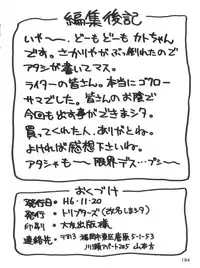 編集後記
いや〜、どーもどーも カトちゃん
です。さかりやがぶっ倒れたので
アタシが書いてマス。
ライターの皆さん。本当にゴクロー
サマでした。皆さんのお陰で
今回も出す事ができまシタ。
買ってくれた人、ありがとね。
よければ感想下さいね。
アタシャも〜限界デス…プシ〜
おくづけ
発行日・H6・11・20
発行・トリプターズ(改名しまシタ)
印刷・大友出版様
連絡先・〒813 福岡市東区唐原5-1-53
川瀬アパート205 山本方
104